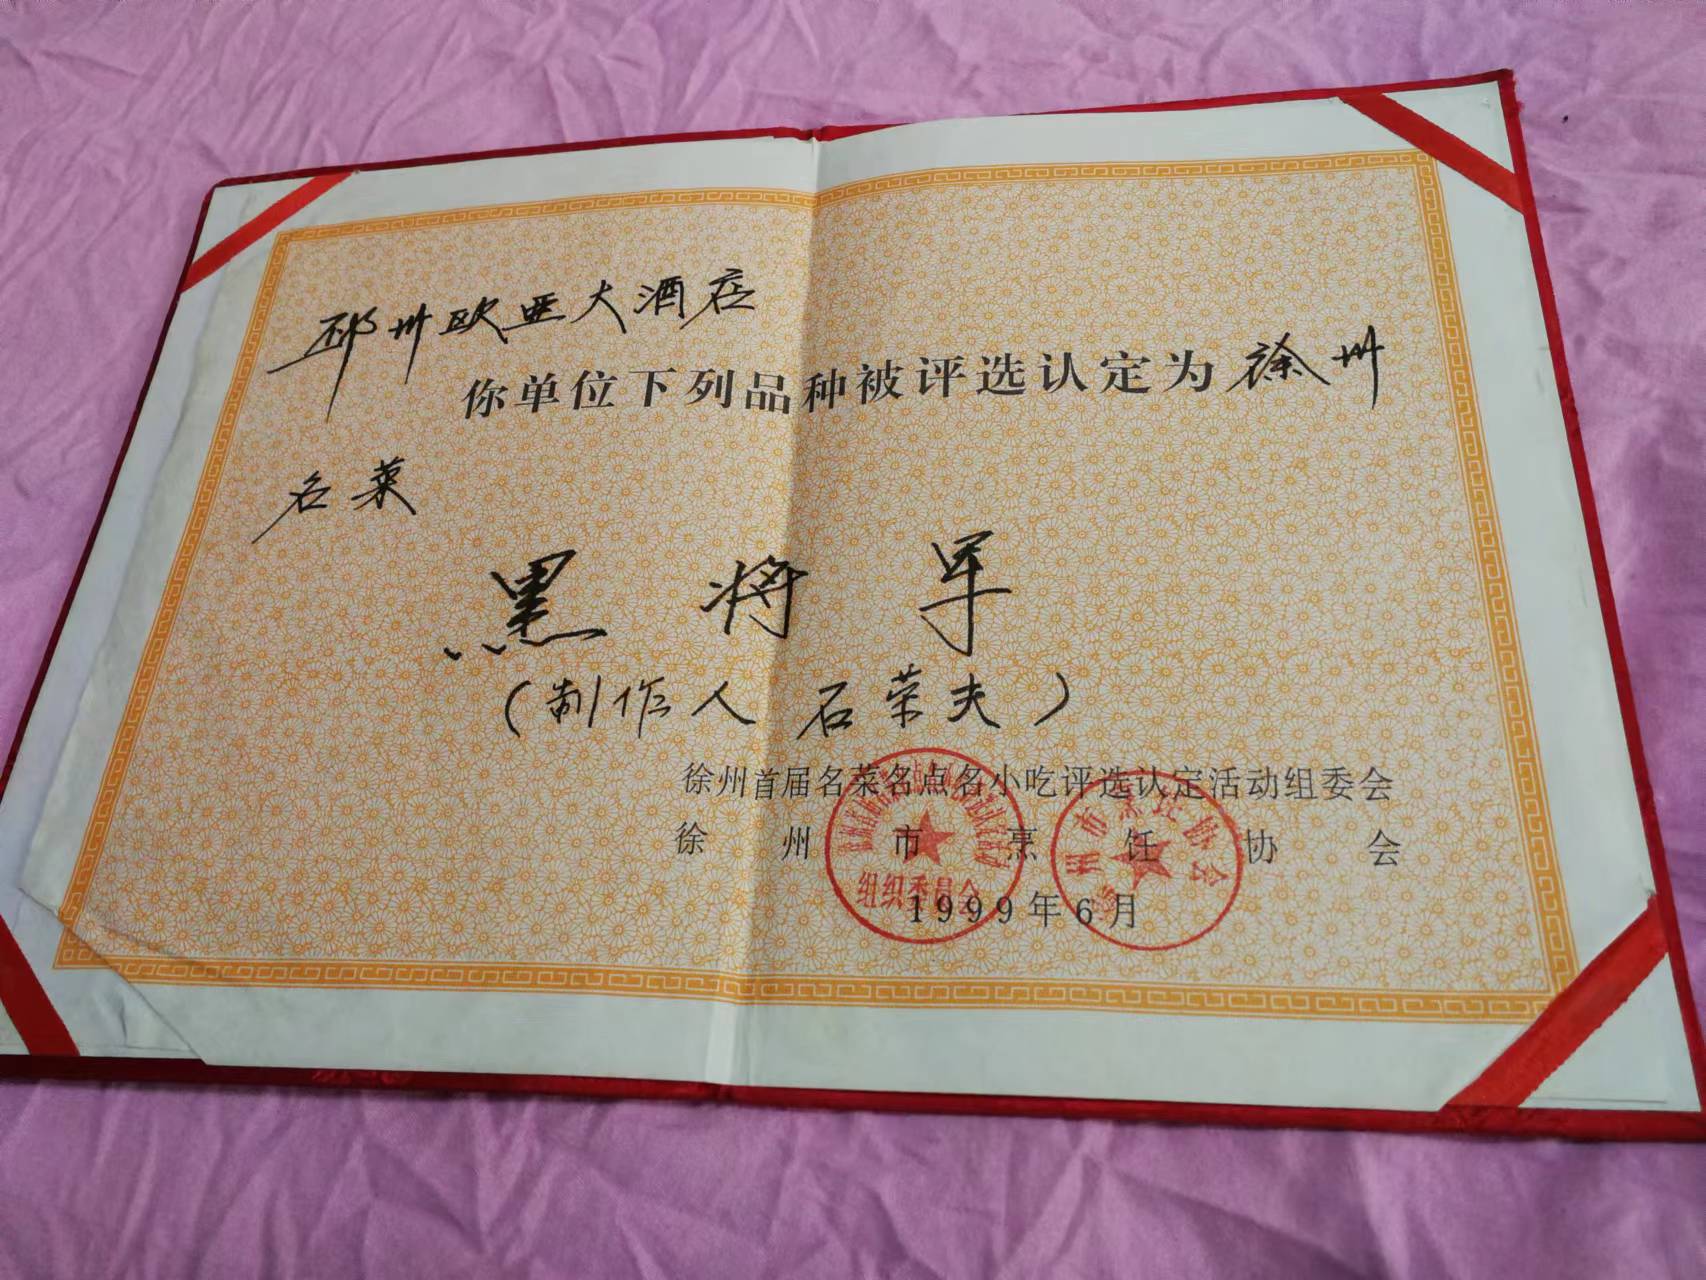 邳州欧亚大酒店
你单位下列品种被评选认定为徐州
名菜
黑将军
(制作人 石荣夫)
徐州首届名菜名点名小吃评选认定活动组委会
徐州市烹饪协会
1999年6月
组织委员会
徐州市烹饪协会